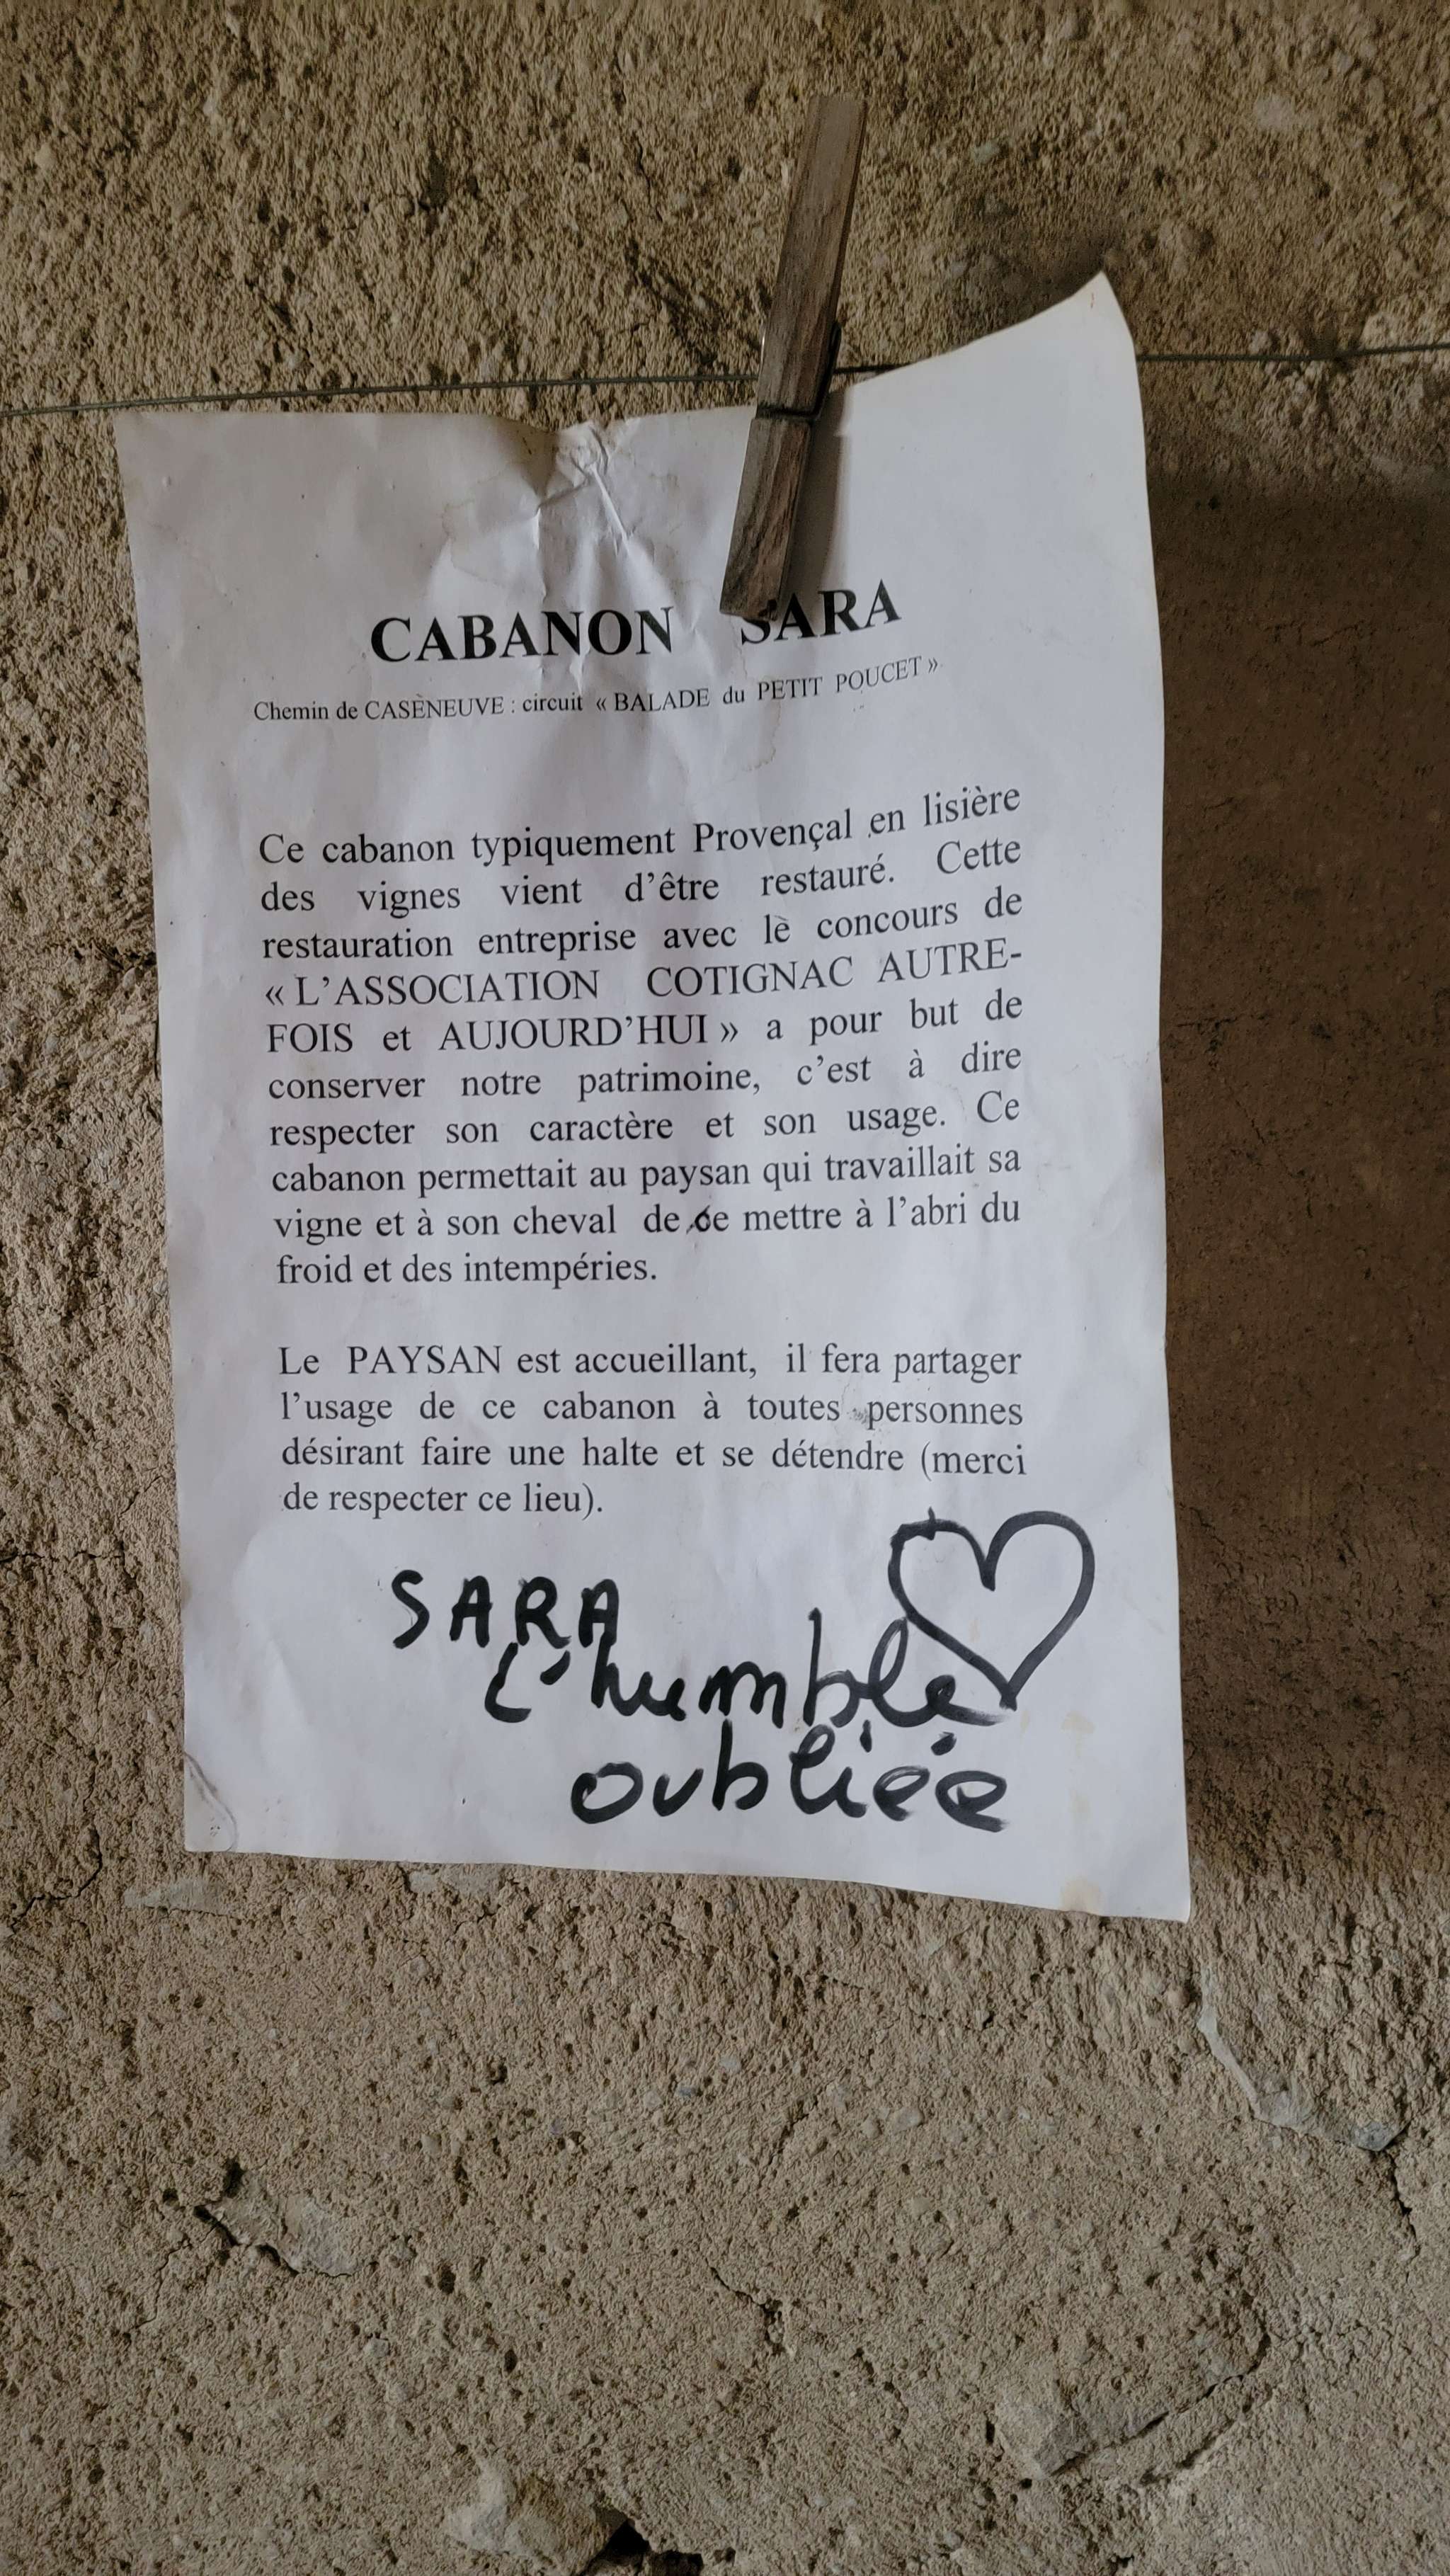 CABANON SARA
Chemin de CASÈNEUVE : circuit « BALADE du PETIT POUCET »
Ce cabanon typiquement Provençal en lisière
des vignes vient d'être restauré. Cette
restauration entreprise avec le concours de
« L'ASSOCIATION COTIGNAC AUTRE-
FOIS et AUJOURD'HUI » a pour but de
conserver notre patrimoine, c'est à dire
respecter son caractère et son usage. Ce
cabanon permettait au paysan qui travaillait sa
vigne et à son cheval de se mettre à l'abri du
froid et des intempéries.
Le PAYSAN est accueillant, il fera partager
l'usage de ce cabanon à toutes personnes
désirant faire une halte et se détendre (merci
de respecter ce lieu).
SARA
L'humble
oubliée